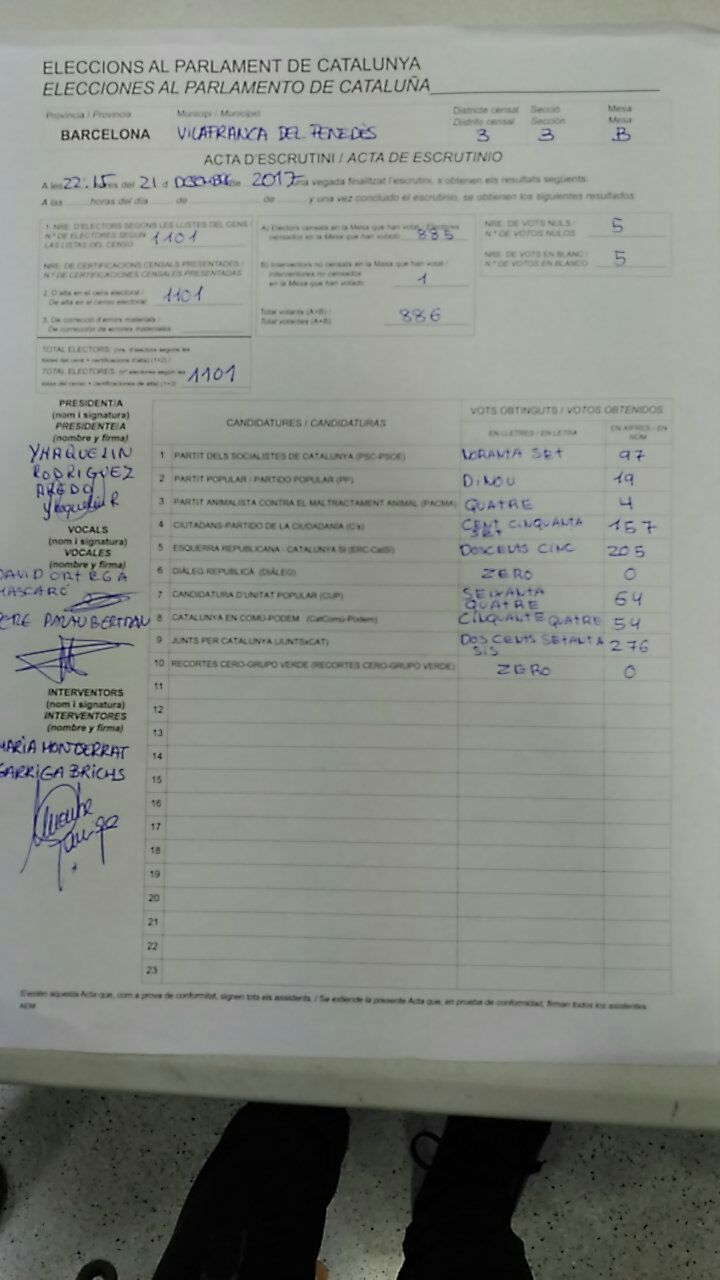 ELECCIONS AL PARLAMENT DE CATALUNYA
ELECCIONES AL PARLAMENTO DE CATALUÑA
Província / Provincia
Municipi / Municipio
Districte censal
Distrito censal
Secció
Sección
Mesa
Mesa
BARCELONA
VILAFRANCA DEL PENEDÈS
3
3
B
ACTA D'ESCRUTINI / ACTA DE ESCRUTINIO
A les 22:15 hores del 21 d DESEMBRE de 2017 una vegada finalitzat l'escrutini, s'obtenen els resultats següents:
A las horas del día de de y una vez concluido el escrutinio, se obtienen los siguientes resultados
1. NRE. D'ELECTORS SEGONS LES LLISTES DEL CENS /
N.º DE ELECTORES SEGÚN
LAS LISTAS DEL CENSO
1101
NRE. DE CERTIFICACIONS CENSALS PRESENTADES /
N.º DE CERTIFICACIONES CENSALES PRESENTADAS
2. D'alta en el cens electoral /
De alta en el censo electoral
1101
3. De correcció d'errors materials /
De corrección de errores materiales
TOTAL ELECTORS (nre. d'electors segons les
llistes del cens + certificacions d'alta) (1+2) /
TOTAL ELECTORES (nº electores según las
listas del censo + certificaciones de alta) (1+2)
1101
A) Electors censats en la Mesa que han votat / Electores
censados en la Mesa que han votado
885
B) Interventors no censats en la Mesa que han votat /
Interventores no censados
en la Mesa que han votado
1
Total votants (A+B) /
Total votantes (A+B)
886
NRE. DE VOTS NULS /
N.º DE VOTOS NULOS
5
NRE. DE VOTS EN BLANC /
N.º DE VOTOS EN BLANCO
5
PRESIDENT/A
(nom i signatura)
PRESIDENTE/A
(nombre y firma)
YHAQUELIN
RODRIGUEZ
VOCALS
(nom i signatura)
VOCALES
(nombre y firma)
DAVID ORTEGA
MASCARÓ
PERE PALAU BERTRAN
INTERVENTORS
(nom i signatura)
INTERVENTORES
(nombre y firma)
MARIA MONTSERRAT
GARRIGA BRICHS
CANDIDATURES / CANDIDATURAS
VOTS OBTINGUTS / VOTOS OBTENIDOS
EN LLETRES / EN LETRA
EN XIFRES / EN NÚM.
1 PARTIT DELS SOCIALISTES DE CATALUNYA (PSC-PSOE) NORANTA SET 97
2 PARTIT POPULAR / PARTIDO POPULAR (PP) DINOU 19
3 PARTIT ANIMALISTA CONTRA EL MALTRACTAMENT ANIMAL (PACMA) QUATRE 4
4 CIUTADANS-PARTIDO DE LA CIUDADANÍA (C's) CENT CINQUANTA SET 157
5 ESQUERRA REPUBLICANA - CATALUNYA SÍ (ERC-CatSí) DOSCENTS CINC 205
6 DIÀLEG REPUBLICÀ (DIÀLEG) ZERO 0
7 CANDIDATURA D'UNITAT POPULAR (CUP) SEIXANTA QUATRE 64
8 CATALUNYA EN COMÚ-PODEM (CatComú-Podem) CINQUANTE QUATRE 54
9 JUNTS PER CATALUNYA (JUNTSxCAT) DOS CENTS SETANTA SIS 276
10 RECORTES CERO-GRUPO VERDE (RECORTES CERO-GRUPO VERDE) ZERO 0
11
12
13
14
15
16
17
18
19
20
21
22
23
S'estén aquesta Acta que, com a prova de conformitat, signen tots els assistents. / Se extiende la presente Acta que, en prueba de conformidad, firman todos los asistentes